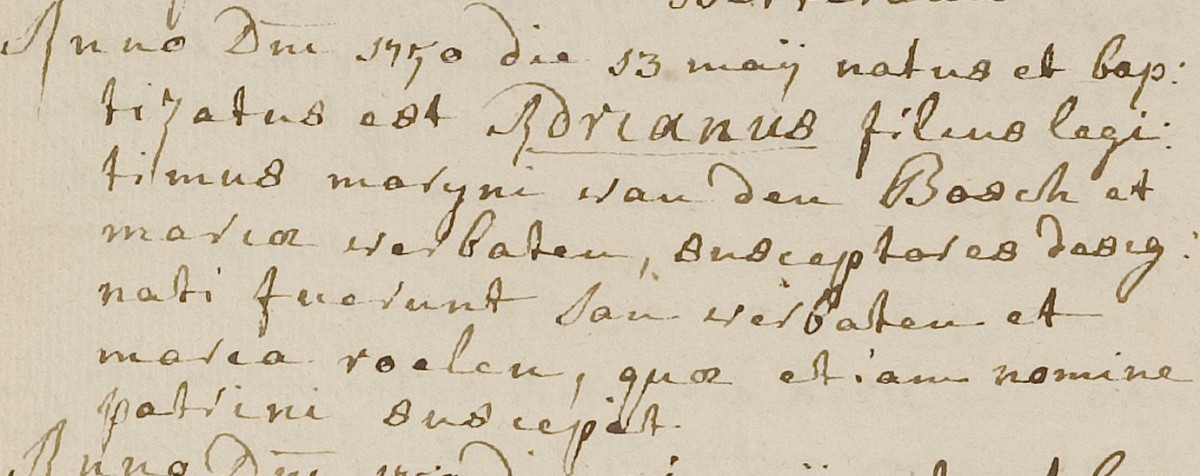 Anno Dm̅ 1750 die 13 maÿ natus et bap:
tizatus est Adrianus filius legi:
timus maryni van den Bosch et
mariæ verbaten, susceptores desig:
nati fuerunt Jan verbaten et
maria roelen, quæ etiam nomine
patrini suscepit.
Anno Dm̅